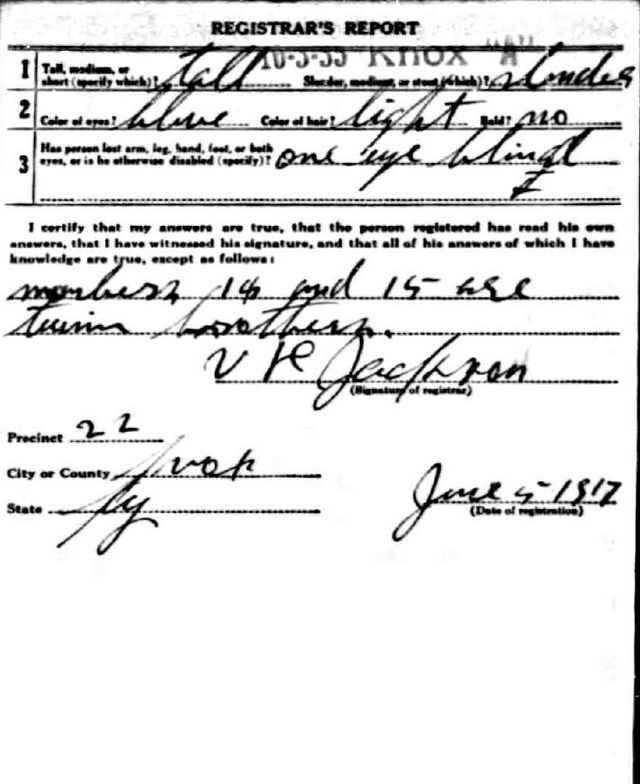 REGISTRAR'S REPORT
Knox "A"
1 Tall, medium, or short (specify which)? tall Slender, medium, or stout (which)? slender
2 Color of eyes? blue Color of hair? light Bald? no
3 Has person lost arm, leg, hand, foot, or both eyes, or is he otherwise disabled (specify)? one eye blind
I certify that my answers are true, that the person registered has read his own
answers, that I have witnessed his signature, and that all of his answers of which I have
knowledge are true, except as follows:
numbers 14 and 15 are
twin brothers.
Jackson
(Signature of registrar)
Precinct 22
City or County Knox
State Ky
June 5 1917
(Date of registration)